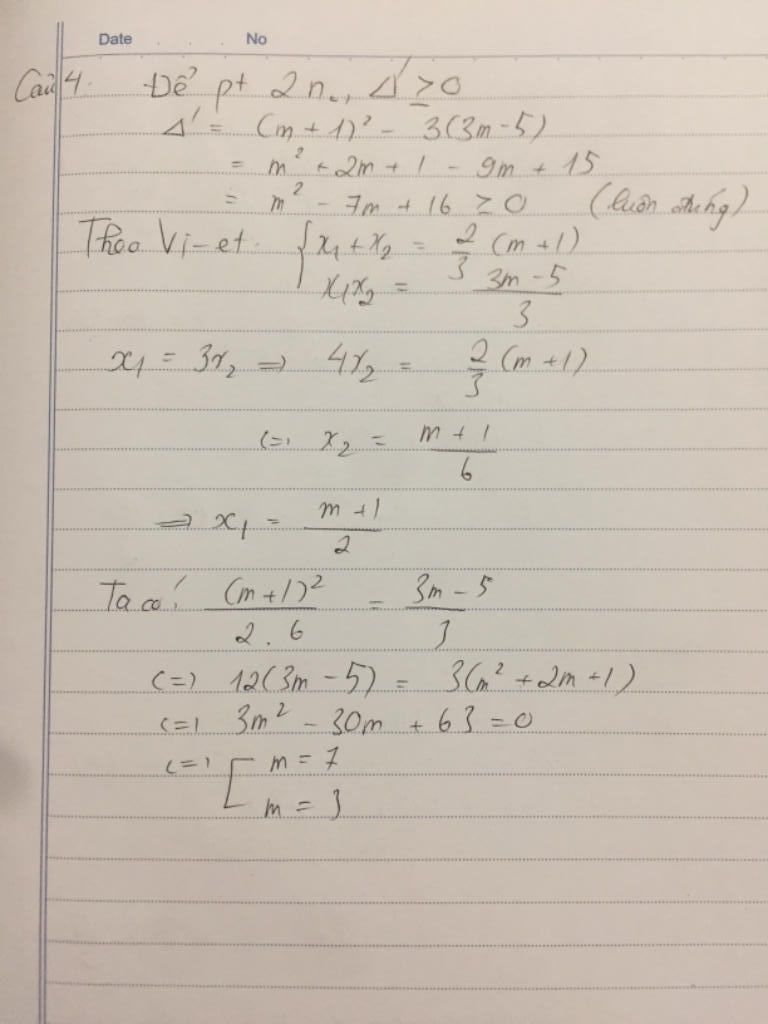 Date . . . No
Câu 4. Để pt 2 n., Δ' ≥ 0
Δ' = (m + 1)² - 3(3m - 5)
= m² + 2m + 1 - 9m + 15
= m² - 7m + 16 ≥ 0 (luôn đúng)
Theo Vi-et. { x₁ + x₂ = 2/3 (m + 1)
x₁x₂ = (3m - 5)/3
x₁ = 3x₂ => 4x₂ = 2/3 (m + 1)
<=> x₂ = (m + 1)/6
=> x₁ = (m + 1)/2
Ta có: (m + 1)²/(2 . 6) = (3m - 5)/3
<=> 12(3m - 5) = 3(m² + 2m + 1)
<=> 3m² - 30m + 63 = 0
<=> [ m = 7
m = 3